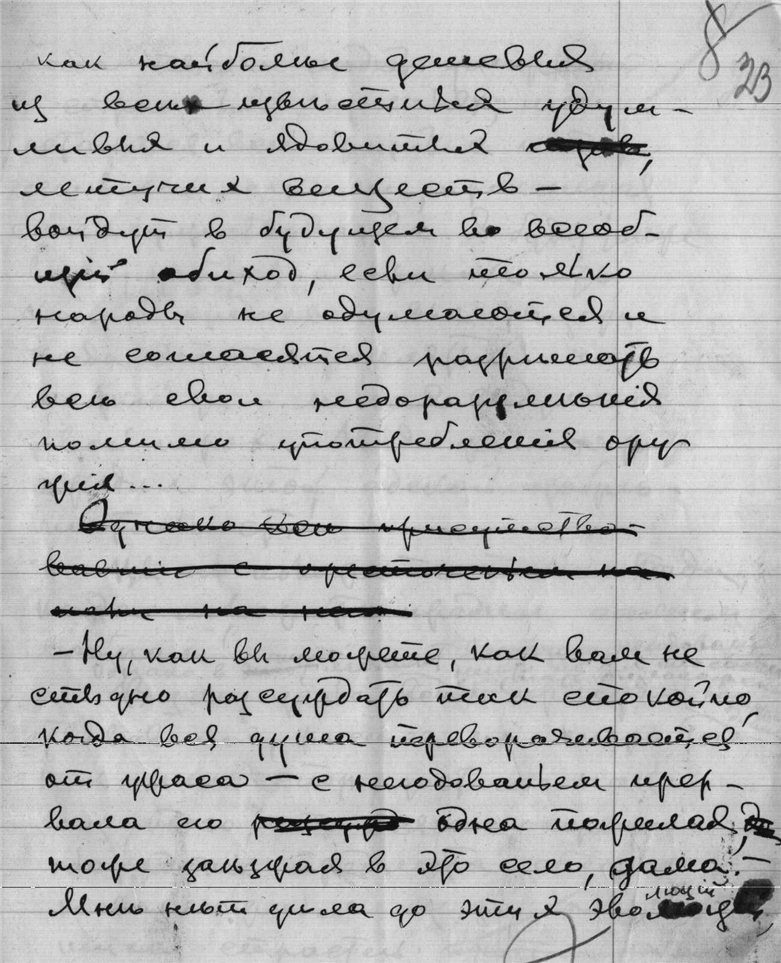 8
23
как наиболее дешевыя
из всех известных удуш-
ливых и ядовитых
летучих веществ —
войдут в будущем во всеоб-
щий обиход, если только
народы не одумаются и
не согласятся разрешать
все свои недоразумения
помимо употребления ору
жия...
Однако все присутство-
вавшие с ожесточеньем на
пали на него
— Ну, как вы можете, как вам не
стыдно разсуждать так спокойно,
когда вся душа переворачивается
от ужаса — с негодованьем прер-
вала его одна пожилая,
тоже заезжая в это село, дама. —
Мне нет дела до этих эволюций